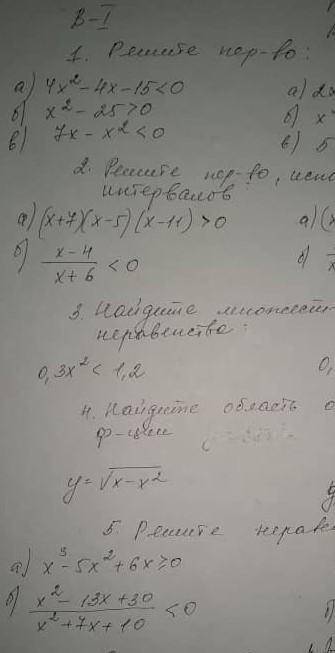 В-I
1. Решите нер-во:
а) 4x² - 4x - 15 < 0 а) 2x
б) x² - 25 > 0 б) x
в) 7x - x² < 0 в) 5
2. Решите нер-во, испо
интервалов:
а) (x+7)(x-5)(x-11) > 0 а) (x
б) \frac{x-4}{x+6} < 0 б)
3. Найдите множест
неравенства:
0,3x² < 1,2 0,
4. Найдите область о
ф-ции
y = √(x-x²) y
5. Решите нераве
а) x³ - 5x² + 6x ≥ 0
б) \frac{x² - 13x + 30}{x² + 7x + 10} < 0 б)